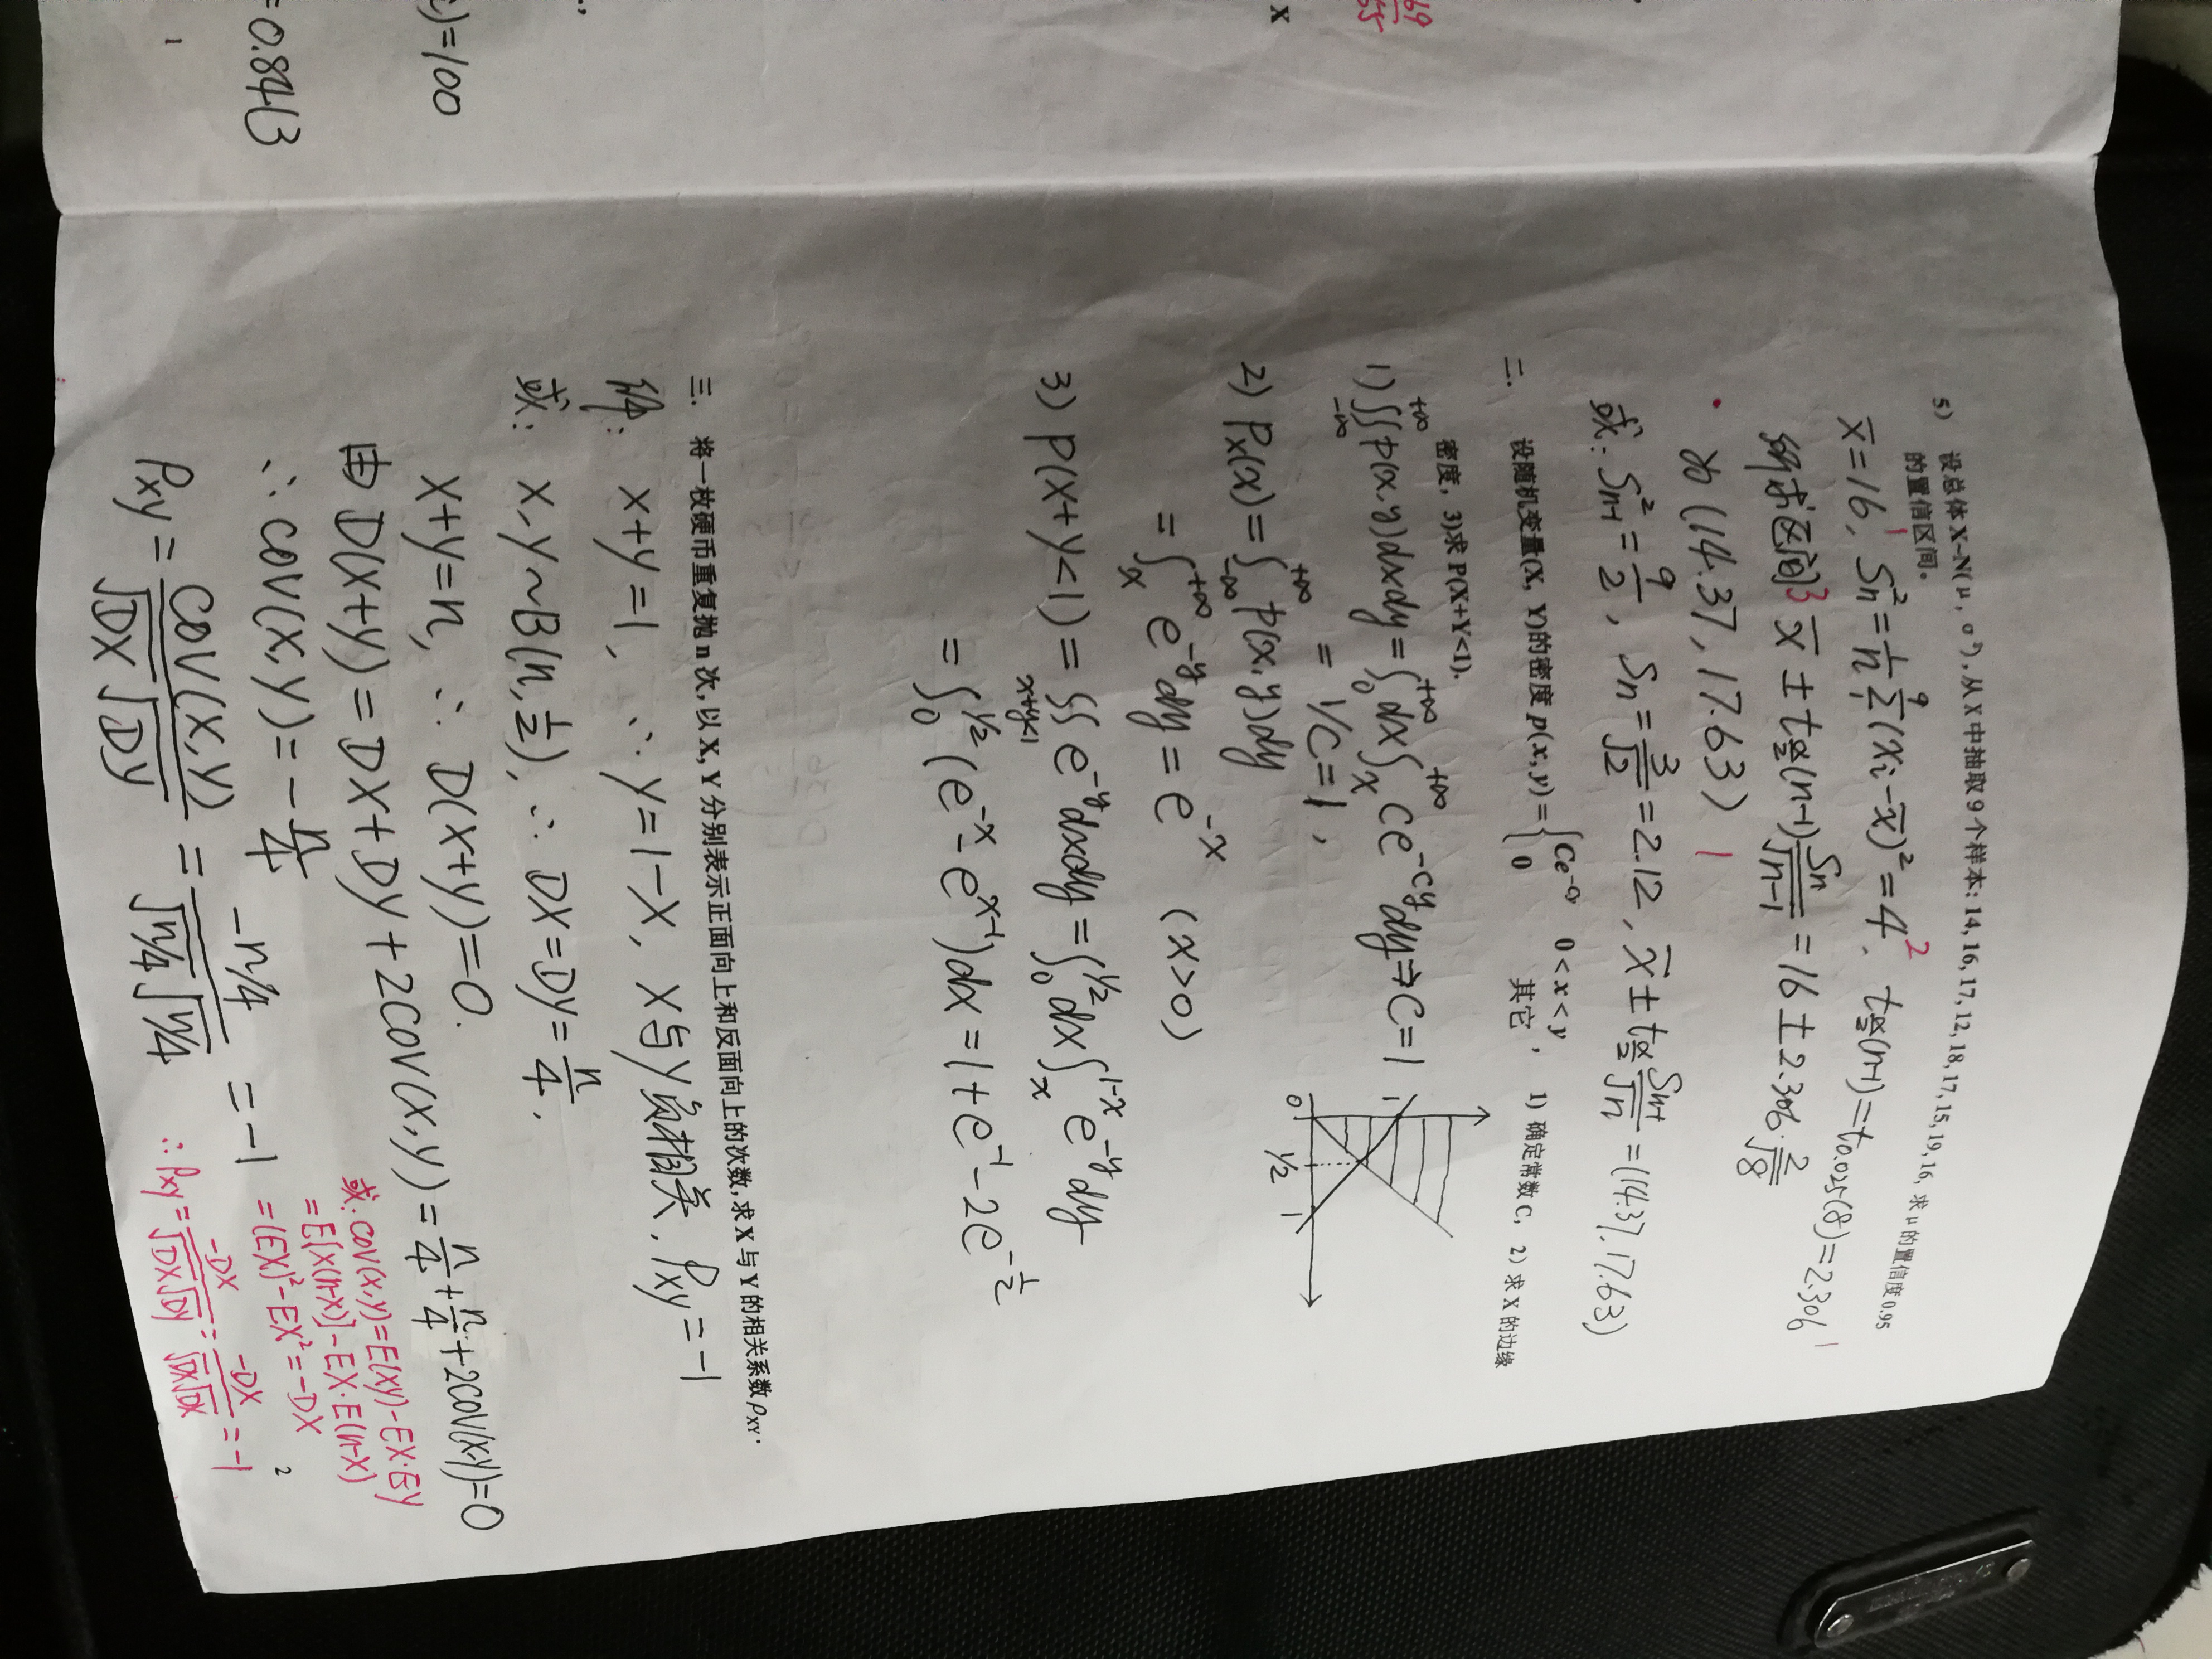 5) 设总体 X~N(μ, σ²), 从 X 中抽取 9 个样本: 14, 16, 17, 12, 18, 17, 15, 19, 16, 求 μ 的置信度 0.95
的置信区间。
x̄=16, 1 Sn²=1/n ∑₁⁹(xi-x̄)²=4, 2 tα/2(n-1)=t0.025(8)=2.306 1
所求区间 3 x̄ ± tα/2(n-1) Sn/√(n-1) = 16 ± 2.306·2/√8
为 (14.37, 17.63) 1
或: S²n-1 = 9/2, Sn = 3/√2 = 2.12, x̄ ± tα/2 Sn-1/√n = (14.37, 17.63)
二. 设随机变量(X, Y)的密度 p(x, y) = { Ce^(-Cy) 0 < x < y
0 其它 , 1) 确定常数 C, 2) 求 X 的边缘
密度, 3)求 P(X+Y<1).
1) ∬₋∞^+∞ p(x,y)dxdy = ∫₀^+∞ dx ∫ₓ^+∞ ce^(-cy) dy ⇒ C=1
= 1/C = 1,
1
0 1/2 1
2) Px(x) = ∫₋∞^+∞ p(x,y)dy
= ∫ₓ^+∞ e^(-y) dy = e^(-x) (x>0)
3) P(X+Y<1) = ∬ₓ₊y<1 e^(-y) dxdy = ∫₀^1/2 dx ∫ₓ^(1-x) e^(-y) dy
= ∫₀^1/2 (e^(-x) - e^(x-1)) dx = 1 + e^(-1) - 2e^(-1/2)
三. 将一枚硬币重复抛 n 次, 以 X, Y 分别表示正面向上和反面向上的次数, 求 X 与 Y 的相关系数 ρXY.
解: X+Y=1, ∴ Y=1-X, X与Y负相关, ρxy=-1
或: X, Y~B(n, 1/2), ∴ DX=DY=n/4,
X+Y=n, ∴ D(X+Y)=0.
由 D(X+Y)=DX+DY+2COV(X,Y)=n/4+n/4+2COV(X,Y)=0
∴ COV(X,Y)=-n/4
ρxy = COV(X,Y)/(√DX √DY) = (-n/4)/(√n/4 √n/4) = -1
或: COV(X,Y)=E(XY)-EX·EY
=E[X(n-X)]-EX·E(n-X)
=(EX)²-EX²=-DX
2
∴ ρxy = -DX/(√DX√DY) = -DX/(√DX√DX) = -1
69
55
X
)=100
=0.8413
1